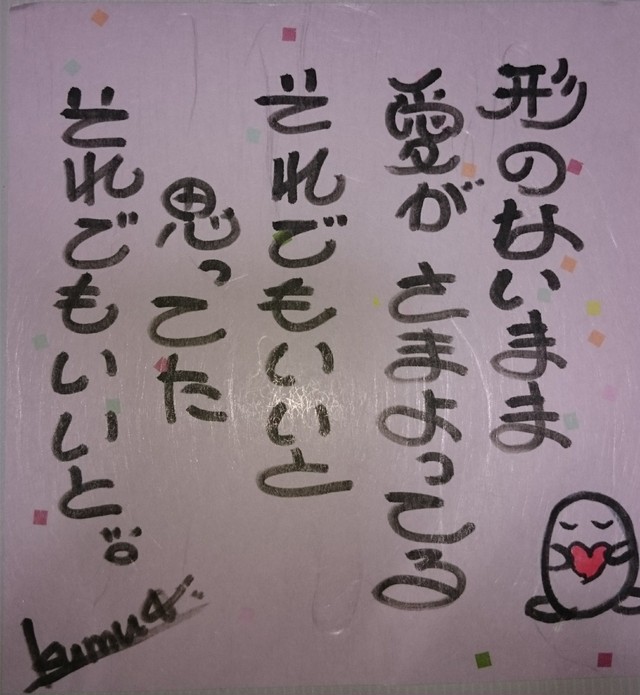 形のないまま
愛が さまよってる
それでもいいと
思ってた
それでもいいと。
kumu